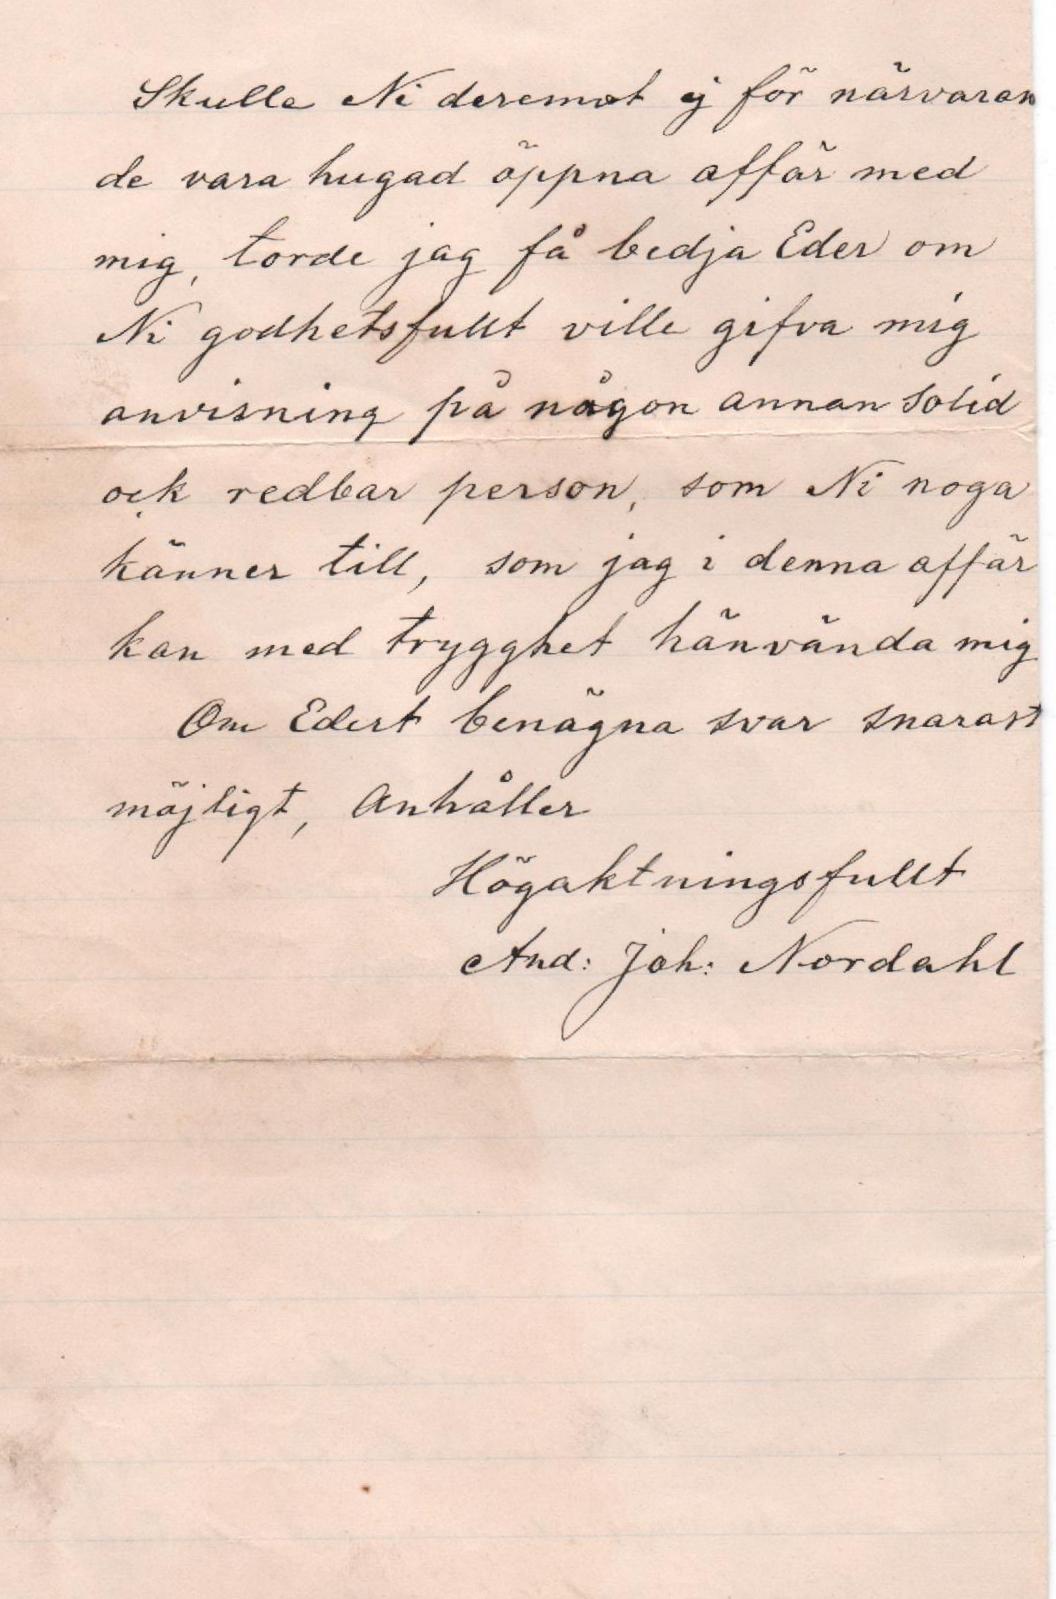 Skulle Ni deremot ej för närvaran
de vara hugad öppna affär med
mig, torde jag få bedja Eder om
Ni godhetsfullt ville gifva mig
anvisning på någon annan solid
ock redbar person, som Ni noga
känner till, som jag i denna affär
kan med trygghet hänvända mig
Om Edert benägna svar snarast
möjligt, Anhåller
Högaktningsfullt
And: Joh: Nordahl